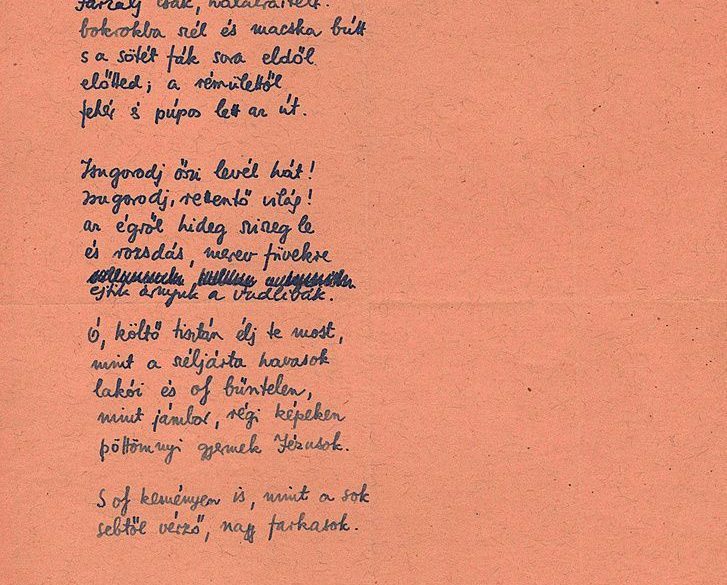 Járkálj csak, halálraítélt.
bokrokba szél és macska bútt
s a sötét fák sora eldől
előtted; a rémülettől
fehér és púpos lett az út.
Zsugorodj őszi levél hát!
zsugorodj, rettentő világ!
az égről hideg sziszeg le
és rozsdás, merev füvekre
ejtik árnyuk a vadlibák.
Ó, költő tisztán élj te most,
mint a széljárta havasok
lakói és oly bűntelen,
mint jámbor, régi képeken
pöttömnyi gyermek Jézusok.
S oly keményen is, mint a sok
sebtől vérző, nagy farkasok.